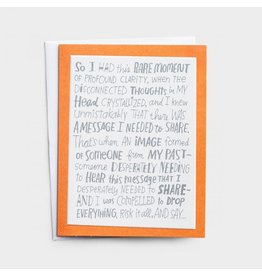 So I HAD this RARE MOMENT
OF PROFOUND CLARITY, WHEN THE
DISCONNECTED THOUGHTS IN MY
Head CRYSTALIZED, AND I KNEW
UNMISTAKABLY THAT THERE WAS
A MESSAGE I NEEDED TO SHARE.
THAT'S WHEN AN IMAGE formed
OF SOMEONE from MY PAST–
SOMEONE DESPERATELY NEEDING
TO HEAR THIS MESSAGE THAT I
DESPERATELY NEEDED TO SHARE–
AND I WAS COMPELLED TO DROP
EVERYTHING, RISK IT ALL, AND SAY...